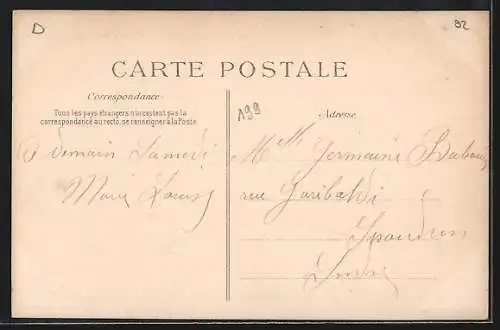 D
92
CARTE POSTALE
Correspondance
Tous les pays étrangers n'acceptent pas la
correspondance au recto, se renseigner à la Poste
199
Adresse
A demain Samedi
Marie
Mlle Germaine
rue Garibaldi
Indre